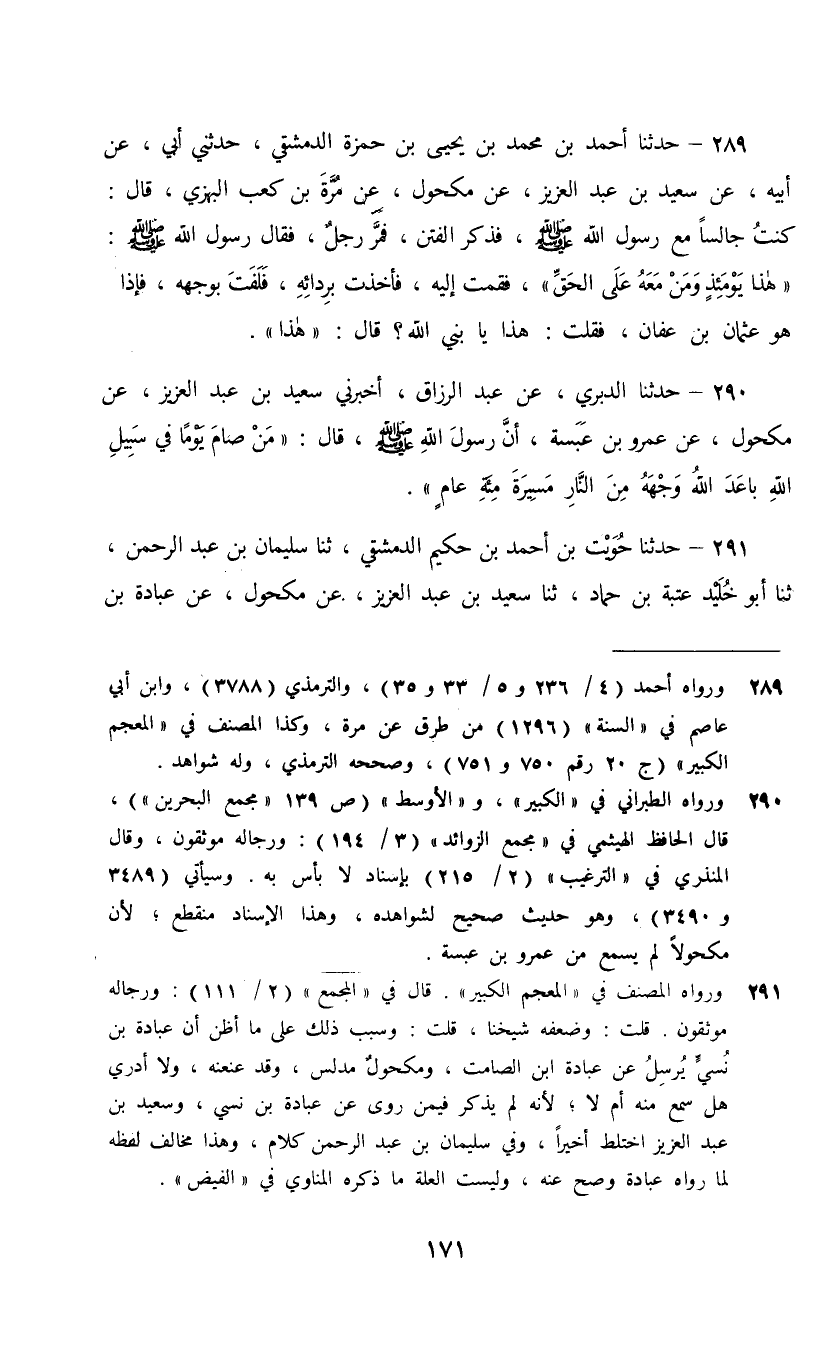 ٢٨٩ – حدثنا أحمد بن محمد بن يحيى بن حمزة الدمشقي ، حدثني أبي ، عن
أبيه ، عن سعيد بن عبد العزيز ، عن مكحول ، عن مُرَّةَ بن كعب البهزي ، قال :
كنتُ جالساً مع رسول الله ﷺ ، فذكر الفتن ، فمَّر رجلٌ ، فقال رسول الله ﷺ :
« هٰذا يَوْمَئِذٍ وَمَنْ مَعَهُ عَلَى الحَقِّ » ، فقمت إليه ، فأخذت بردائِهِ ، فَلَفَتَ بوجهه ، فإذا
هو عثمان بن عفان ، فقلت : هذا يا نبي الله ؟ قال : « هٰذا » .
٢٩٠ – حدثنا الدبري ، عن عبد الرزاق ، أخبرني سعيد بن عبد العزيز ، عن
مكحول ، عن عمرو بن عَبَسة ، أنَّ رسولَ اللهِ ﷺ ، قال : « مَنْ صامَ يَوْمًا في سَبِيلِ
اللهِ باعَدَ اللهُ وَجْهَهُ مِنَ النَّارِ مَسِيرَةَ مِئَةِ عامٍ » .
٢٩١ – حدثنا حُوَيْت بن أحمد بن حكيم الدمشقي ، ثنا سليمان بن عبد الرحمن ،
ثنا أبو خُلَيْد عتبة بن حماد ، ثنا سعيد بن عبد العزيز ، عن مكحول ، عن عبادة بن
٢٨٩ ورواه أحمد ( ٤ / ٢٣٦ و ٥ / ٣٣ و ٣٥ ) ، والترمذي ( ٣٧٨٨ ) ، وابن أبي
عاصم في « السنة » ( ١٢٩٦ ) من طرق عن مرة ، وكذا المصنف في « المعجم
الكبير » ( ج ٢٠ رقم ٧٥٠ و ٧٥١ ) ، وصححه الترمذي ، وله شواهد .
٢٩٠ ورواه الطبراني في « الكبير » ، و « الأوسط » ( ص ١٣٩ « مجمع البحرين » ) ،
قال الحافظ الهيثمي في « مجمع الزوائد » ( ٣ / ١٩٤ ) : ورجاله موثقون ، وقال
المنذري في « الترغيب » ( ٢ / ٢١٥ ) بإسناد لا بأس به . وسيأتي ( ٣٤٨٩
و ٣٤٩٠ ) ، وهو حديث صحيح لشواهده ، وهذا الإسناد منقطع ؛ لأن
مكحولاً لم يسمع من عمرو بن عبسة .
٢٩١ ورواه المصنف في « المعجم الكبير » . قال في « المجمع » ( ٢ / ١١١ ) : ورجاله
موثقون . قلت : وضعفه شيخنا ، قلت : وسبب ذلك على ما أظن أن عبادة بن
نُسيٍّ يُرسِلُ عن عبادة ابن الصامت ، ومكحولٌ مدلس ، وقد عنعنه ، ولا أدري
هل سمع منه أم لا ؛ لأنه لم يذكر فيمن روى عن عبادة بن نسي ، وسعيد بن
عبد العزيز اختلط أخيراً ، وفي سليمان بن عبد الرحمن كلام ، وهذا مخالف لفظه
لما رواه عبادة وصح عنه ، وليست العلة ما ذكره المناوي في « الفيض » .
١٧١